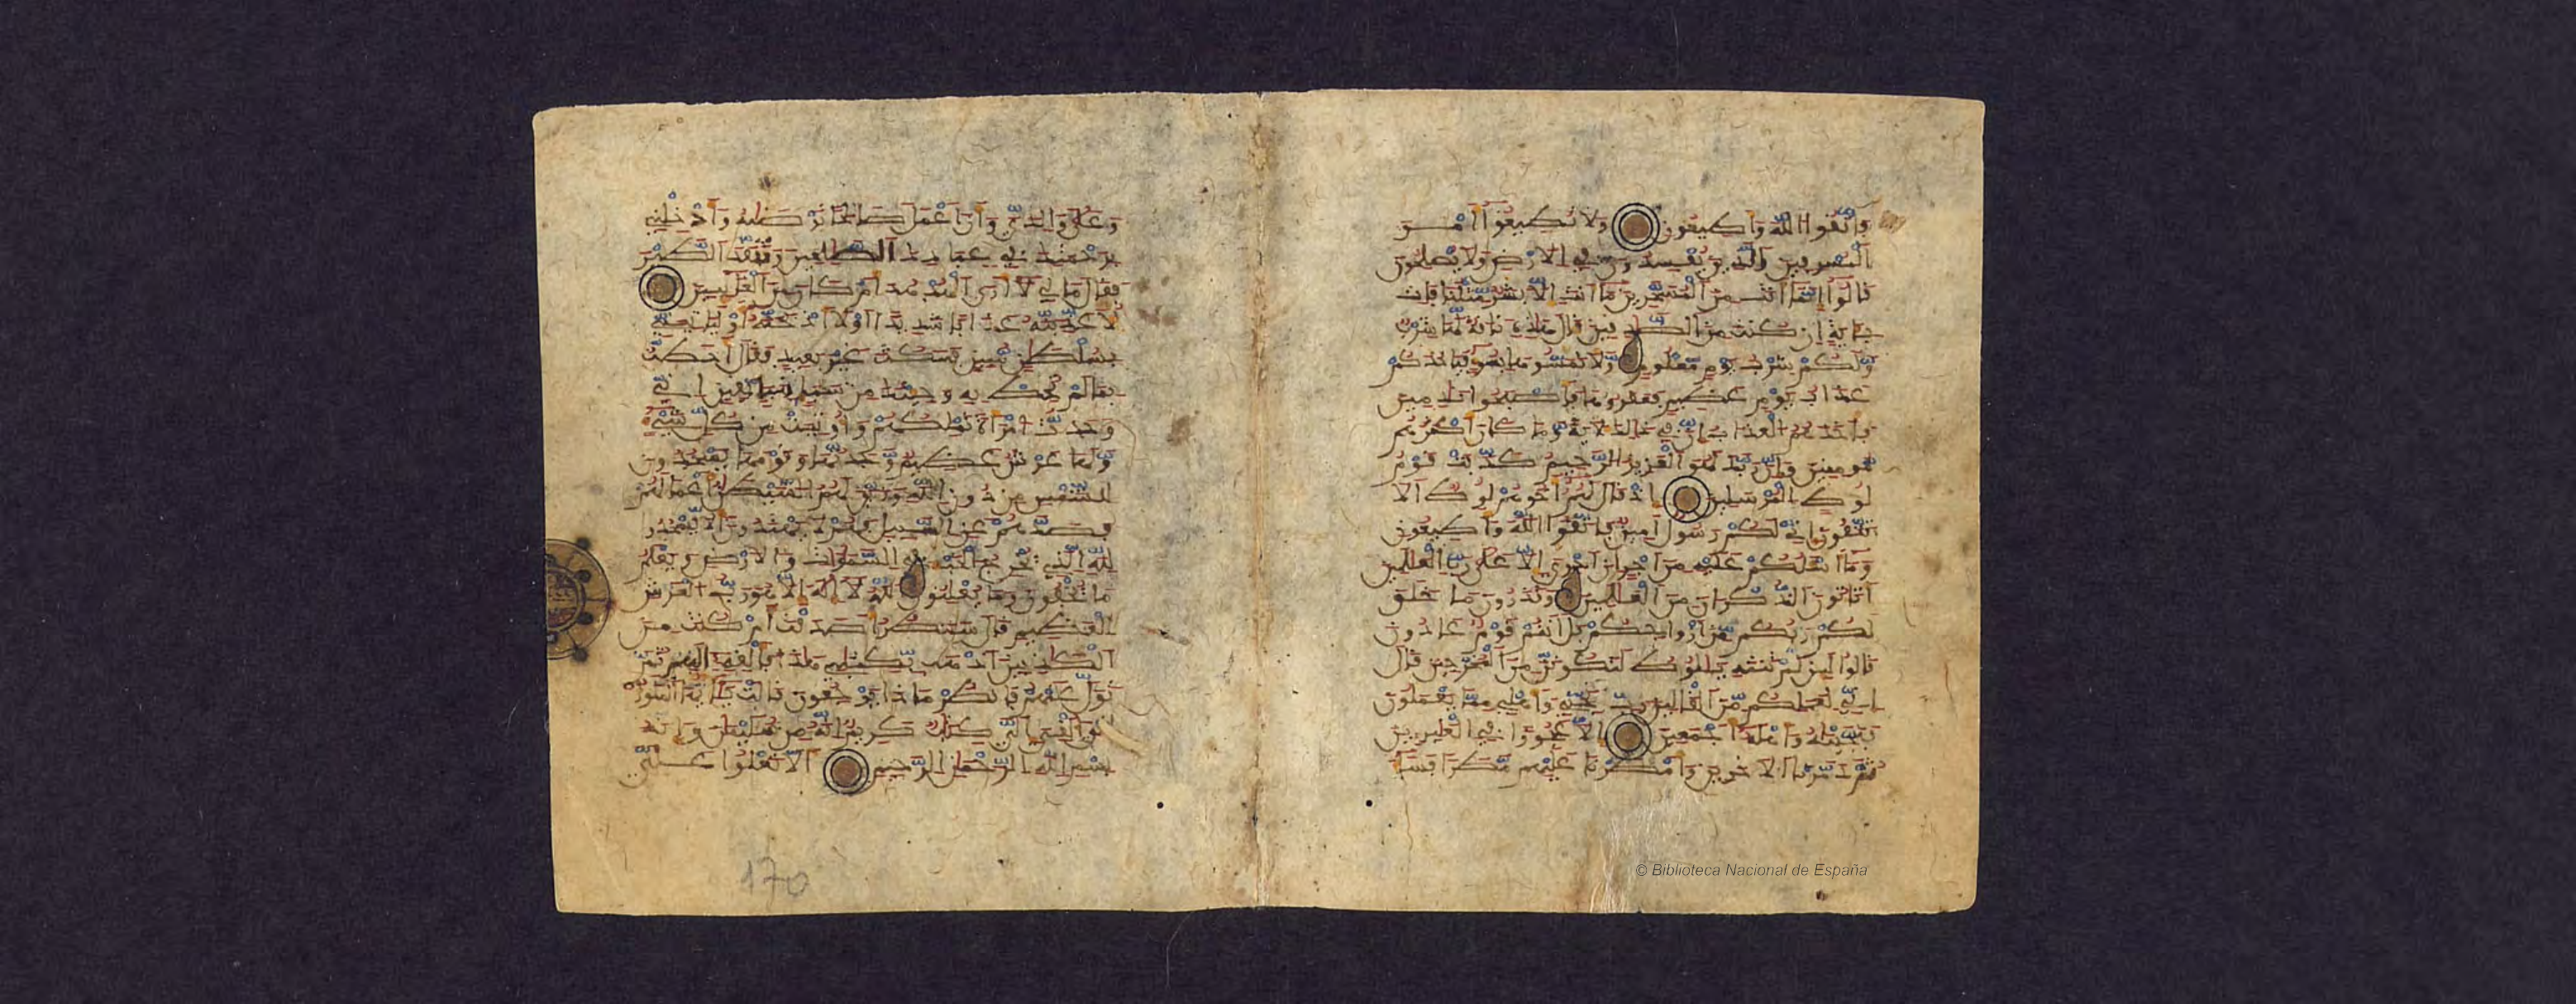 فاتقوا الله وأطيعون ولا تطيعوا أمر
المسرفين الذين يفسدون في الأرض ولا يصلحون
قالوا إنما أنت من المسحرين ما أنت إلا بشر مثلنا فات
بآية إن كنت من الصدقين قال هذه ناقة لها شرب
ولكم شرب يوم معلوم ولا تمسوها بسوء فيأخذكم
عذاب يوم عظيم فعقروها فأصبحوا ندمين
فأخذهم العذاب إن في ذلك لآية وما كان أكثرهم
مومنين وإن ربك لهو العزيز الرحيم كذبت قوم
لوط المرسلين إذ قال لهم أخوهم لوط ألا
تتقون إني لكم رسول أمين فاتقوا الله وأطيعون
وما أسئلكم عليه من أجر إن أجري إلا على رب العلمين
أتاتون الذكران من العلمين وتذرون ما خلق
لكم ربكم من أزواجكم بل أنتم قوم عادون
قالوا لئن لم تنته يلوط لتكونن من المخرجين قال
إني لعملكم من القالين رب نجني وأهلي مما يعملون
فنجينه وأهله أجمعين إلا عجوزا في الغبرين
ثم دمرنا الاخرين وأمطرنا عليهم مطرا فساء
© Biblioteca Nacional de España
وعلى والدي وأن أعمل صالحا ترضيه وأدخلني
برحمتك في عبادك الصالحين وتفقد الطير
فقال ما لي لا أرى الهدهد أم كان من الغائبين
لأعذبنه عذابا شديدا أو لأاذبحنه أو لياتيني
بسلطن مبين فمكث غير بعيد فقال أحطت
بما لم تحط به وجئتك من سبإ بنبإ يقين إني
وجدت امرأة تملكهم وأوتيت من كل شيء
ولها عرش عظيم وجدتها وقومها يسجدون
للشمس من دون الله وزين لهم الشيطن أعملهم
فصدهم عن السبيل فهم لا يهتدون ألا يسجدوا
لله الذي يخرج الخبء في السموات والأرض ويعلم
ما يخفون وما يعلنون الله لا إله إلا هو رب العرش
العظيم قال سننظر أصدقت أم كنت من
الكذبين اذهب بكتبي هذا فألقه إليهم ثم
تول عنهم فانظر ماذا يرجعون قالت يأيها الملؤا
إني ألقي إلي كتب كريم إنه من سليمن وإنه
بسم الله الرحمن الرحيم ألا تعلوا علي
170